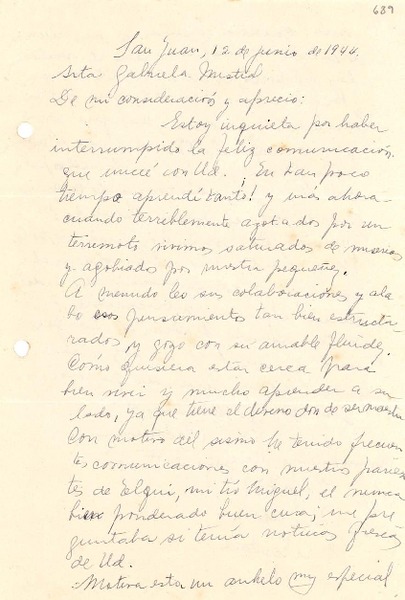 689
San Juan, 12 de junio de 1944.
Srta Gabriela Mistral
De mi consideración y aprecio:
Estoy inquieta por haber
interrumpido la feliz comunicación
que inicié con Ud. En tan poco
tiempo aprendí tanto! y más ahora
cuando terriblemente azotados por un
terremoto vivimos saturados de
y agobiados por nuestra pequeñez.
A menudo leo sus colaboraciones y ala
bo esos pensamientos tan bien estructu
rados, y gozo con su amable fluidez.
Cómo quisiera estar cerca para
bien vivir y mucho aprender a su
lado, ya que tiene el divino don de ser maestra
Con motivo del sismo he tenido frecuen
tes comunicaciones con nuestros parien
tes de Elqui, mi tío Miguel, el nunca
bien ponderado buen cura; me pre
guntaba si tenía noticias frescas
de Ud.
Motiva esta un anhelo muy especial